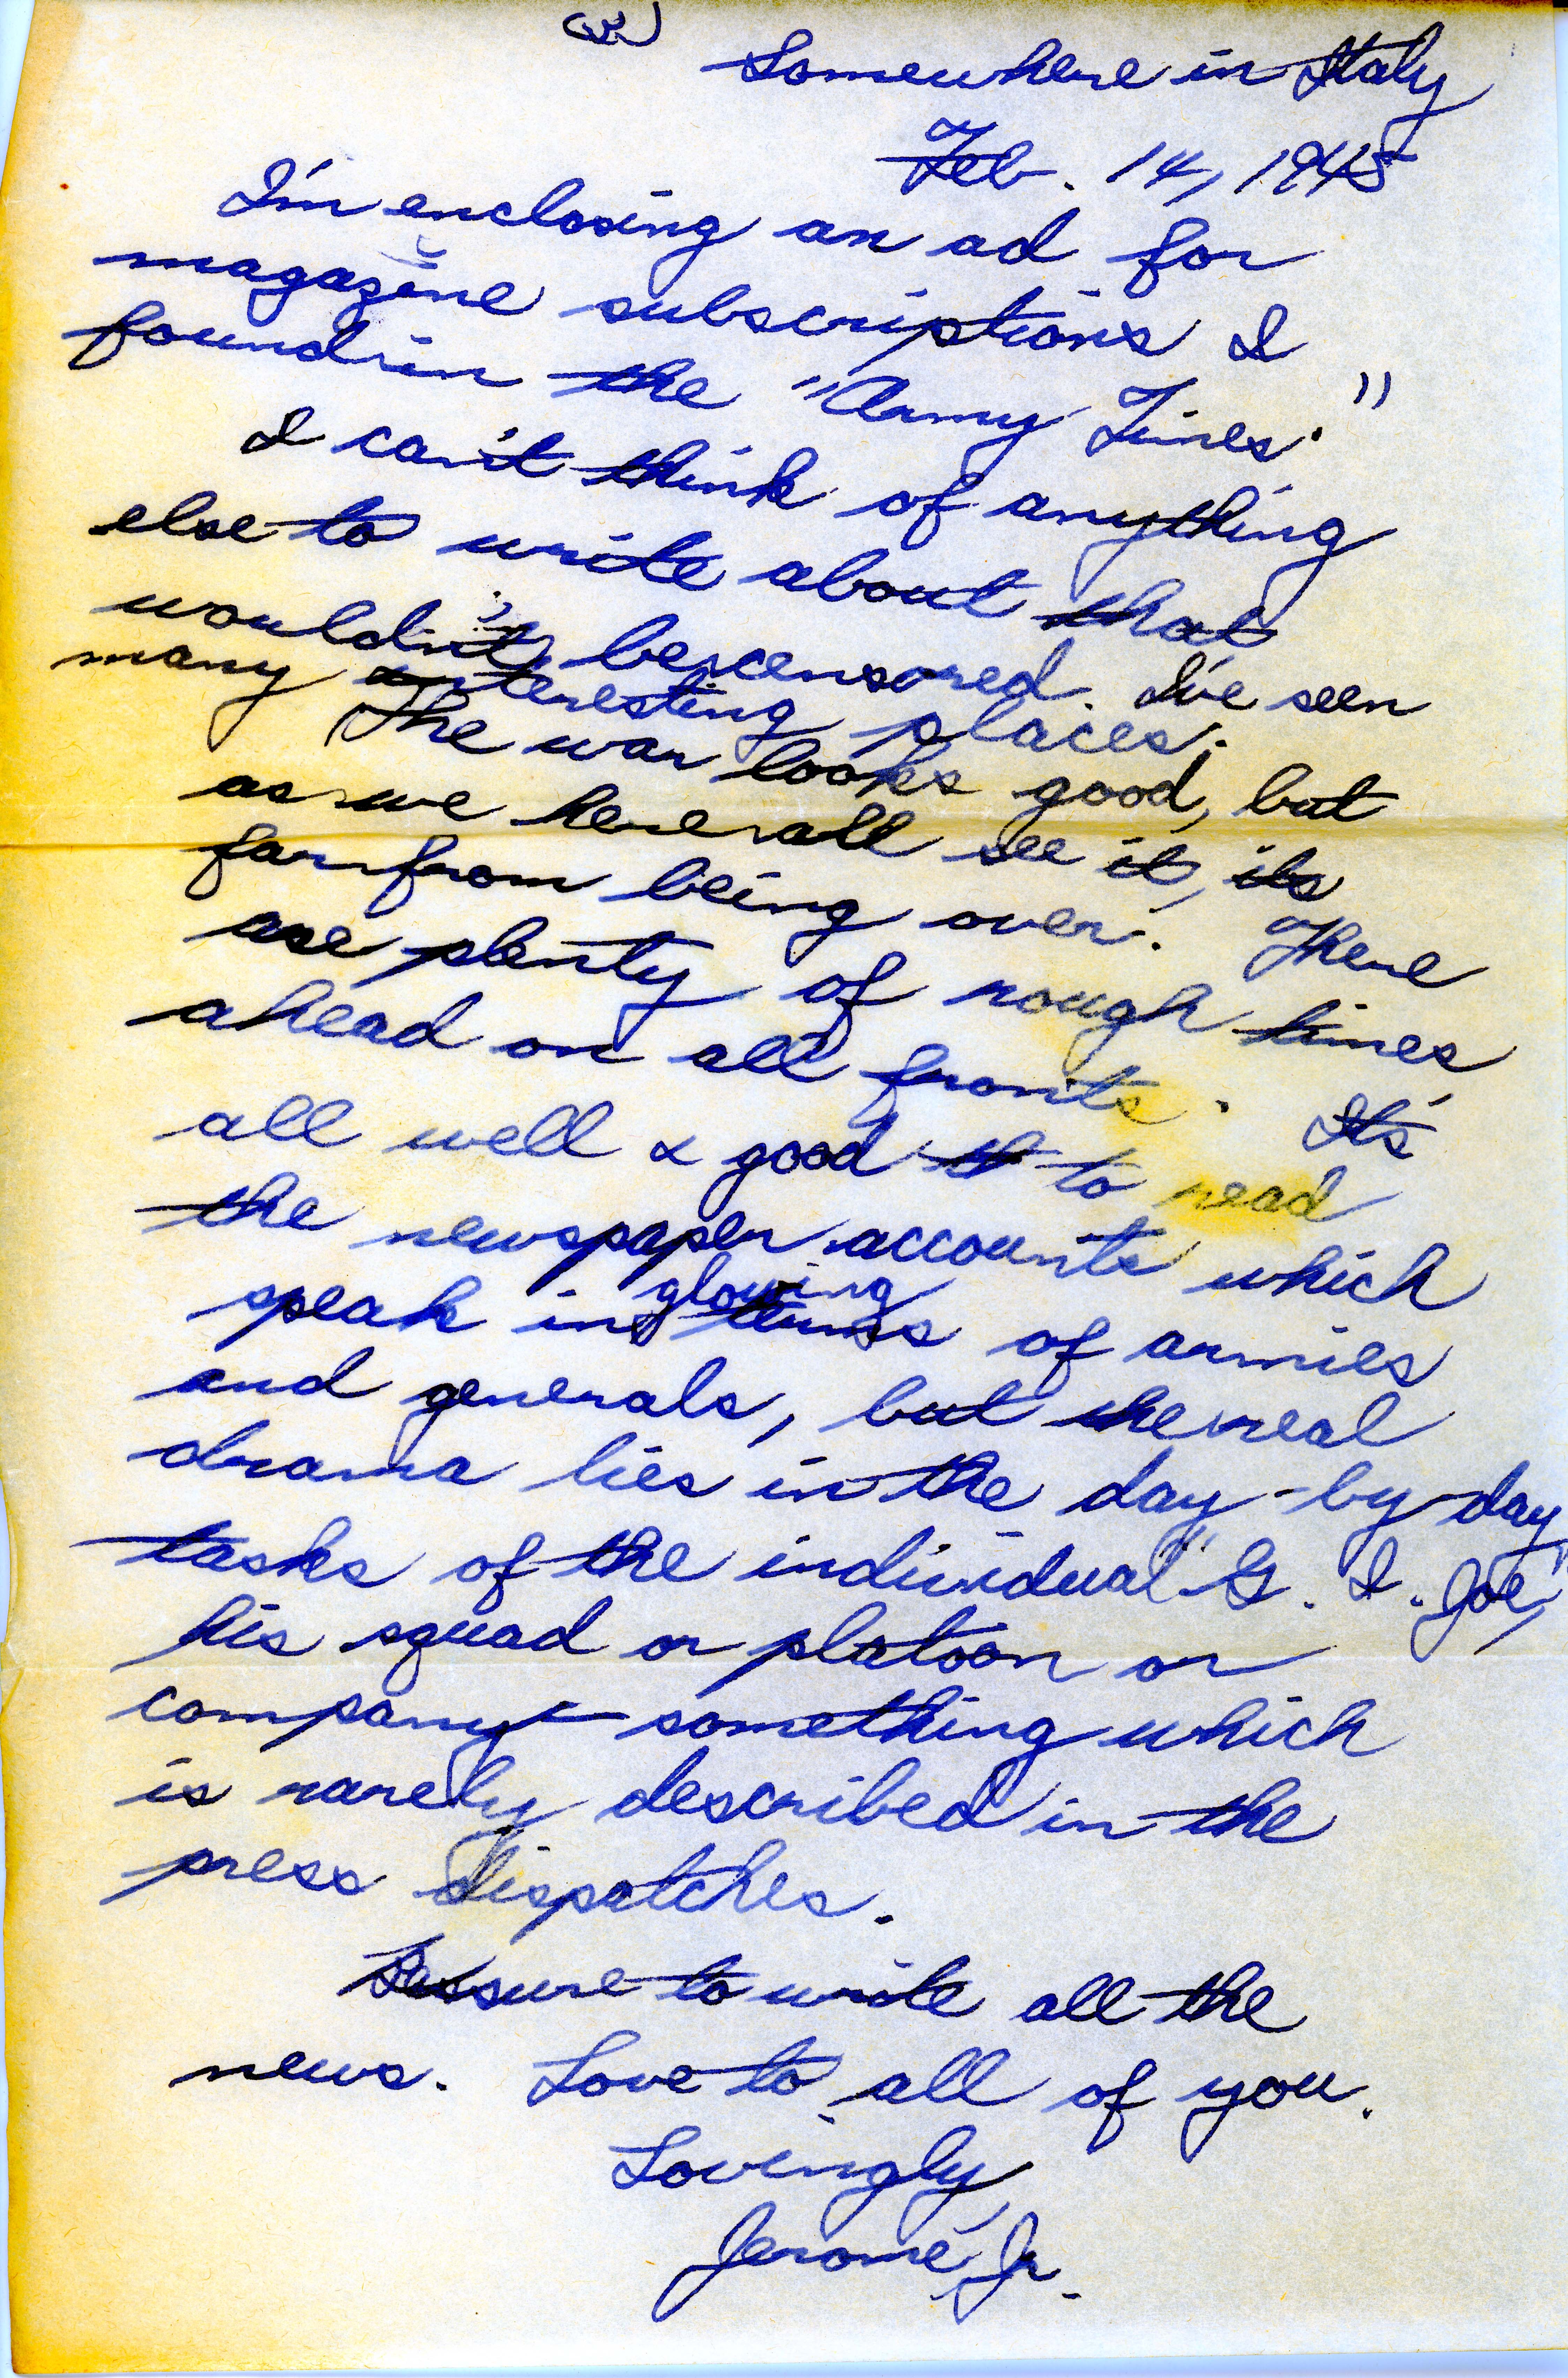 (3)
Somewhere in Italy
Feb. 14, 1945
I'm enclosing an ad for
magazine subscriptions I
found in the "Army Times."
I can't think of anything
else to write about that
wouldn't be censored. I've seen
many interesting places.
The war looks good, but
as we here all see it, its
far from being over. There
are plenty of rough times
ahead on all fronts. It's
all well & good to read
the newspaper accounts which
speak in glowing terms of armies
and generals, but the real
drama lies in the day-by-day
tasks of the individual "G. I. Joe,"
his squad or platoon or
company — something which
is rarely described in the
press dispatches.
Be sure to write all the
news. Love to all of you.
Lovingly,
Jerome, Jr.